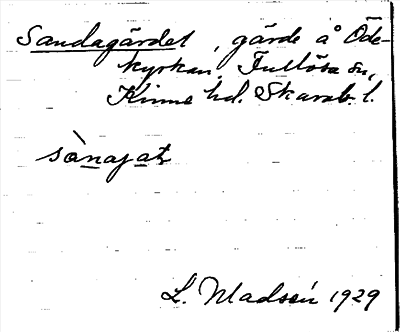 Sandagärdet, gärde å Öde-
kyrkan, Fullösa sn,
Kinne hd. Skarab. l.
sànajat
L. Madsén 1929